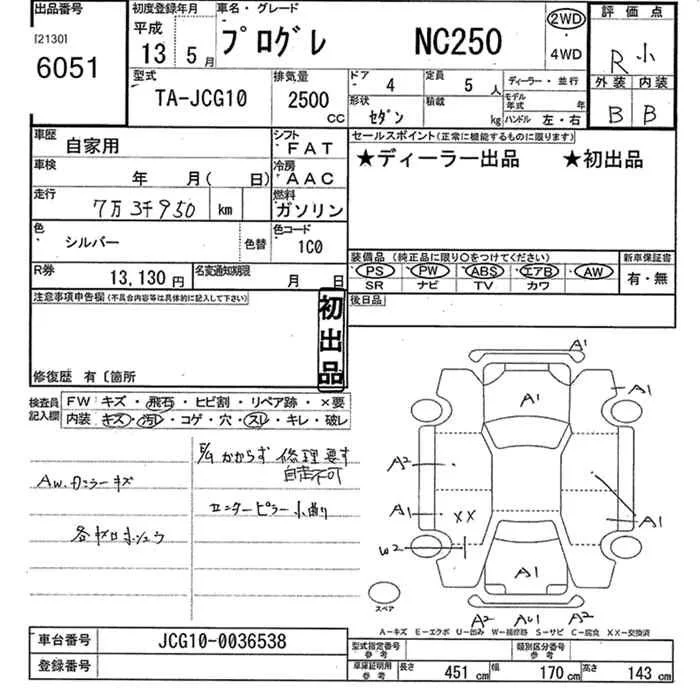 出品番号 初度登録年月 車名・グレード 評価点
[2130] 平成 プログレ NC250 2WD
6051 13 5月 4WD R 小
型式 排気量 ドア 定員 ディーラー・並行 外装 内装
TA-JCG10 2500 CC 4 5人 モデル年式 年 B B
形状 セダン 積載 kg ハンドル 左・右
車歴 自家用 シフト FAT セールスポイント(正常に機能するものに限ります)
★ディーラー出品 ★初出品
車検 年 月( 日) 冷房 AAC
走行 7万3千950 km 燃料 ガソリン
色 シルバー 色替 色コード 1C0
装備品(純正品に限り○をつけてください) 新車保証書
PS・PW・ABS・エアB・AW 有・無
SR ナビ TV カワ
R券 13,130円 名変通知期限 月 日
後日品
注意事項申告欄(不具合内容等は具体的に記入して下さい)
初出品
修復歴 有〔箇所
検査員記入欄 FW キズ・飛石・ヒビ割・リペア跡・×要
内装 キズ・汚レ・コゲ・穴・スレ・キレ・破レ
E/gかからず 修理要す
自走不可
AW.カラーキズ
センターピラー小曲り
A1
A1
A1
A2
A1 XX
A1
W2
A1
A2 A2
スペア
A-キズ E-エクボ U-凹み W-補修跡 S-サビ C-腐食 XX-交換済
車台番号 JCG10-0036538
型式指定番号 参考 類別区分番号 参考
登録番号
車庫証明用 参考 長さ 451cm 幅 170cm 高さ 143cm